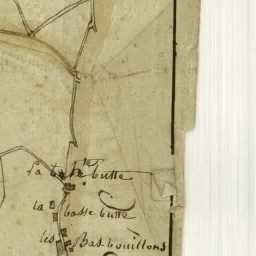 la h^te butte
la basse butte
les Bas bouillons